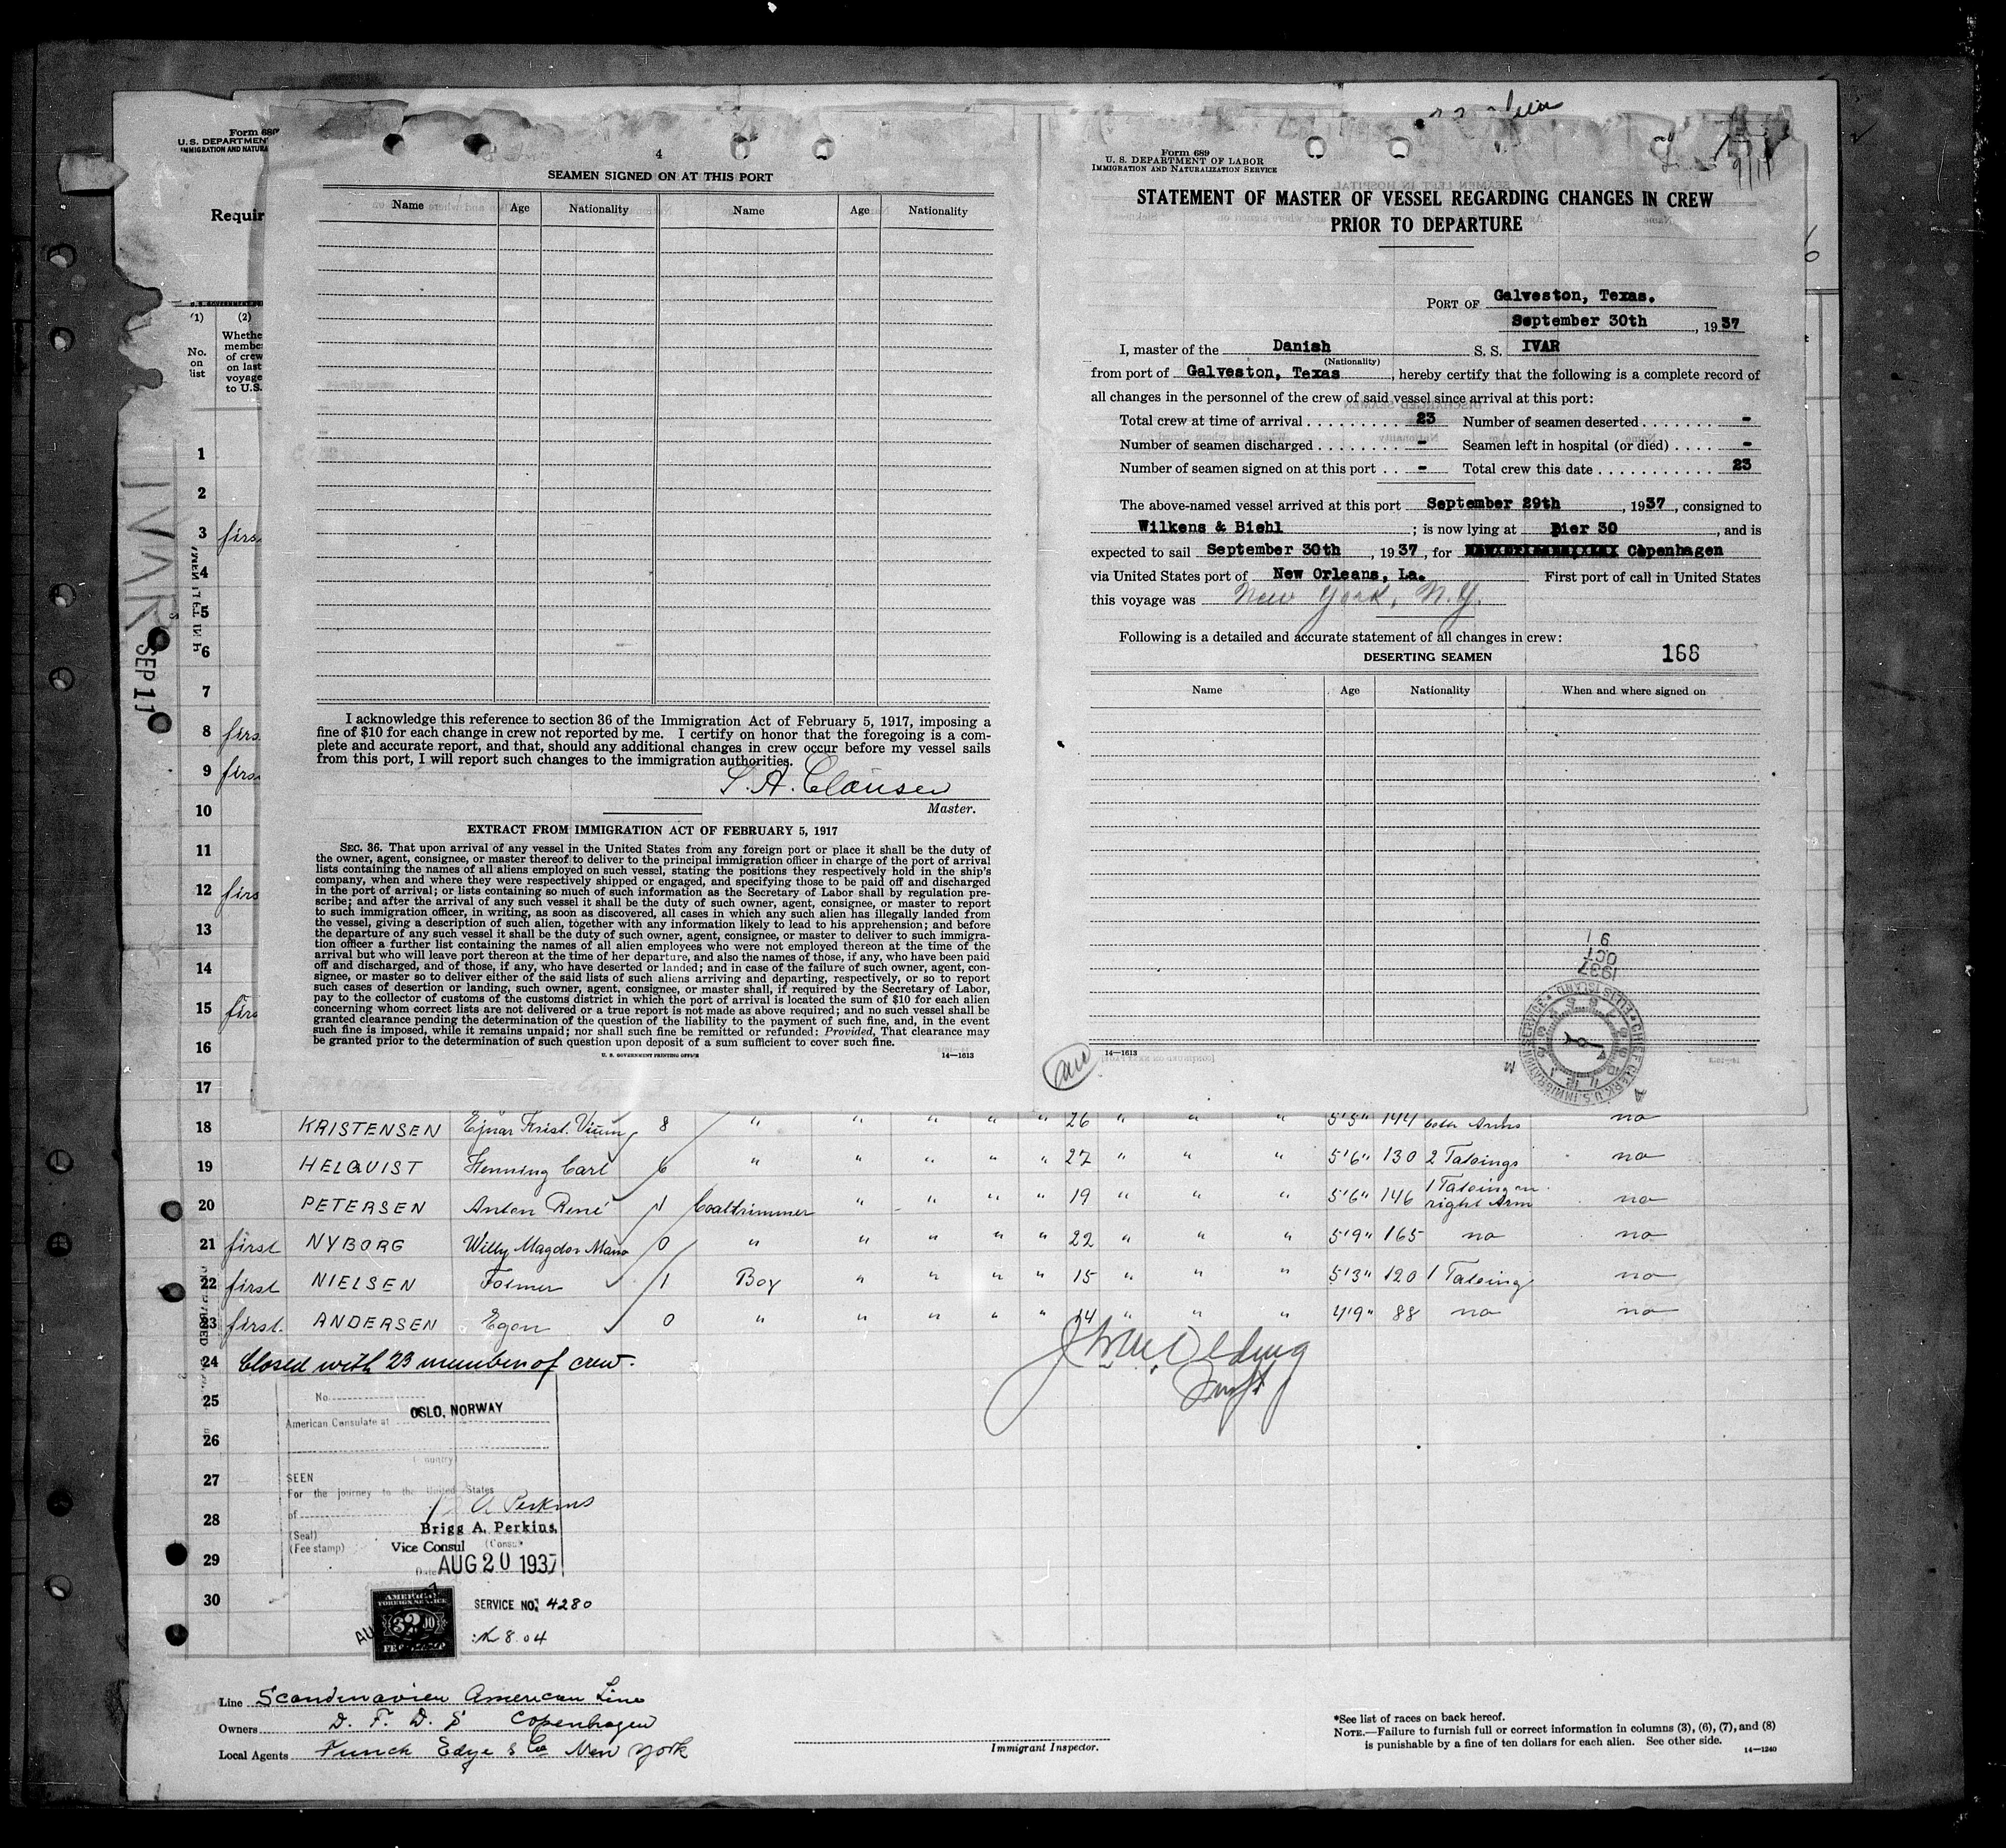 Form 689
U. S. DEPARTMENT
IMMIGRATION AND NATURA
Requir
(1) (2)
No. on list
Whethe
membe
of crew
on last
voyage
to U.S.
IVAR
SEP 11
1
2
3 first
4
5
6
7
8 firs
9 firs
10
11
12 firs
13
14
15 firs
16
17
4
SEAMEN SIGNED ON AT THIS PORT
Name Age Nationality Name Age Nationality
I acknowledge this reference to section 36 of the Immigration Act of February 5, 1917, imposing a
fine of $10 for each change in crew not reported by me. I certify on honor that the foregoing is a com-
plete and accurate report, and that, should any additional changes in crew occur before my vessel sails
from this port, I will report such changes to the immigration authorities.
S. A. Clausen
Master.
EXTRACT FROM IMMIGRATION ACT OF FEBRUARY 5, 1917
SEC. 36. That upon arrival of any vessel in the United States from any foreign port or place it shall be the duty of
the owner, agent, consignee, or master thereof to deliver to the principal immigration officer in charge of the port of arrival
lists containing the names of all aliens employed on such vessel, stating the positions they respectively hold in the ship's
company, when and where they were respectively shipped or engaged, and specifying those to be paid off and discharged
in the port of arrival; or lists containing so much of such information as the Secretary of Labor shall by regulation pre-
scribe; and after the arrival of any such vessel it shall be the duty of such owner, agent, consignee, or master to report
to such immigration officer, in writing, as soon as discovered, all cases in which any such alien has illegally landed from
the vessel, giving a description of such alien, together with any information likely to lead to his apprehension; and before
the departure of any such vessel it shall be the duty of such owner, agent, consignee, or master to deliver to such immigra-
tion officer a further list containing the names of all alien employees who were not employed thereon at the time of the
arrival but who will leave port thereon at the time of her departure, and also the names of those, if any, who have been paid
off and discharged, and of those, if any, who have deserted or landed; and in case of the failure of such owner, agent, con-
signee, or master so to deliver either of the said lists of such aliens arriving and departing, respectively, or so to report
such cases of desertion or landing, such owner, agent, consignee, or master shall, if required by the Secretary of Labor,
pay to the collector of customs of the customs district in which the port of arrival is located the sum of $10 for each alien
concerning whom correct lists are not delivered or a true report is not made as above required; and no such vessel shall be
granted clearance pending the determination of the question of the liability to the payment of such fine, and, in the event
such fine is imposed, while it remains unpaid; nor shall such fine be remitted or refunded: Provided, That clearance may
be granted prior to the determination of such question upon deposit of a sum sufficient to cover such fine.
U. S. GOVERNMENT PRINTING OFFICE 14—1613
Form 689
U. S. DEPARTMENT OF LABOR
IMMIGRATION AND NATURALIZATION SERVICE
STATEMENT OF MASTER OF VESSEL REGARDING CHANGES IN CREW
PRIOR TO DEPARTURE
PORT OF Galveston, Texas.
September 30th, 1937
I, master of the Danish S. S. IVAR
(Nationality)
from port of Galveston, Texas, hereby certify that the following is a complete record of
all changes in the personnel of the crew of said vessel since arrival at this port:
Total crew at time of arrival . . . . . . . . . . 23 Number of seamen deserted . . . . . . . . -
Number of seamen discharged . . . . . . . . - Seamen left in hospital (or died) . . . . -
Number of seamen signed on at this port . . - Total crew this date . . . . . . . . . . . 23
The above-named vessel arrived at this port September 29th, 1937, consigned to
Wilkens & Biehl; is now lying at pier 30, and is
expected to sail September 30th, 1937, for Copenhagen
via United States port of New Orleans, La. First port of call in United States
this voyage was New York, N.Y.
Following is a detailed and accurate statement of all changes in crew:
DESERTING SEAMEN 168
Name Age Nationality When and where signed on
14—1613
1937
OCT
CHIEF CLERK U.S. IMMIGRATION SERVICE ELLIS ISLAND
18 KRISTENSEN Ejnar Krist. Vium 8 " " " " " 26 " " " 5'5" 144 both Arms no
19 HELQVIST Henning Carl 6 " " " " " 27 " " " 5'6" 130 2 Tatoings no
20 PETERSEN Anton René 1 Coaltrimmer " " " " 19 " " " 5'6" 146 1 Tatoing on right Arm no
21 first NYBORG Willy Magdor 0 " " " " " 22 " " " 5'9" 165 no no
22 first NIELSEN Folmer 1 Boy " " " " 15 " " " 5'3" 120 1 Tatoing no
23 first. ANDERSEN Egon 0 " " " " " 14 " " " 4'9" 88 no no
24 Closed with 23 members of crew.
25
26
27
28
29
30
No.
American Consulate at OSLO, NORWAY
(Country)
SEEN
For the journey to the United States
of A Perkins
(Seal) Brigg A. Perkins,
(Fee stamp) Vice Consul (Consul
Date AUG 20 1937
AMERICAN
FOREIGN SERVICE
SERVICE NO. 4280
8.04
Line Scandinavien American Line
Owners D. F. D. S Copenhagen
Local Agents Funch Edye & Co New York
Immigrant Inspector.
*See list of races on back hereof.
NOTE.—Failure to furnish full or correct information in columns (3), (6), (7), and (8)
is punishable by a fine of ten dollars for each alien. See other side.
14—1240